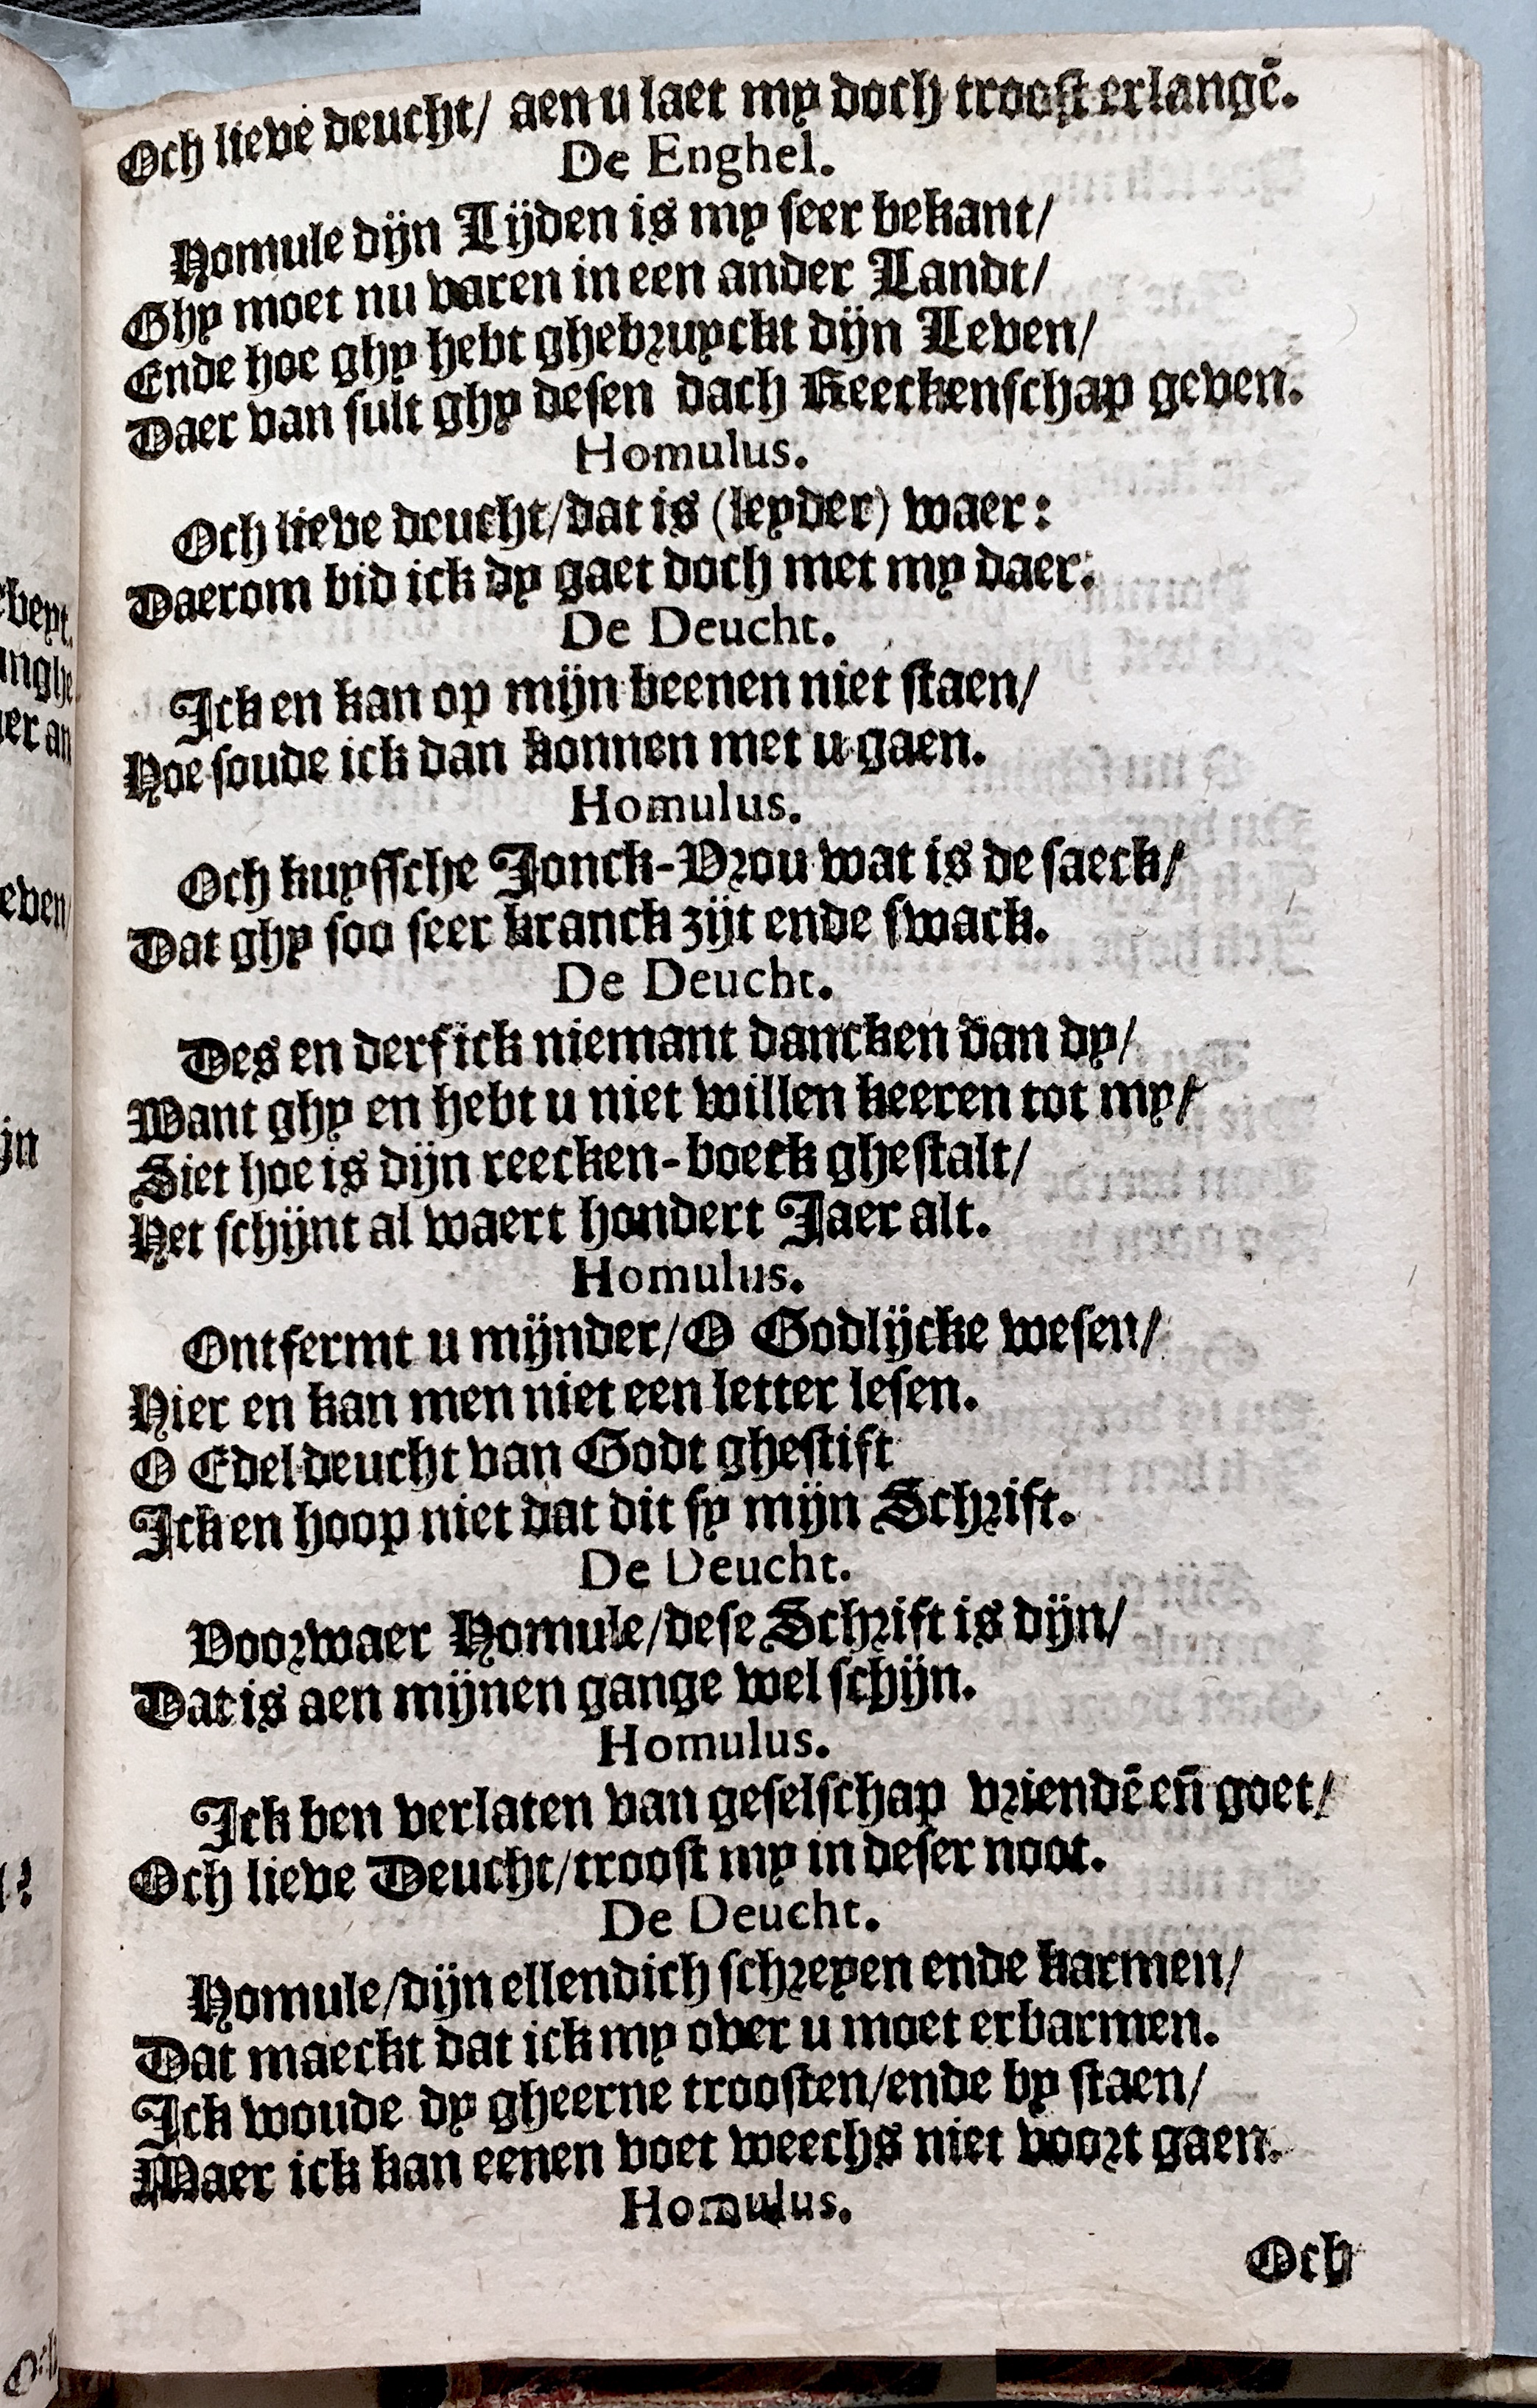 Och lieve deucht/ aen u laet my doch troost erlangē.
De Enghel.
Homule dijn Lijden is my seer bekant/
Ghy moet nu varen in een ander Landt/
Ende hoe ghy hebt ghebruyckt dijn Leven/
Daer van sult ghy desen dach Reeckenschap geven.
Homulus.
Och lieve deucht/dat is (leyder) waer:
Daerom bid ick dy gaet doch met my daer:
De Deucht.
Ick en kan op mijn beenen niet staen/
Hoe soude ick dan konnen met u gaen.
Homulus.
Och kuyssche Jonck-Vrou wat is de saeck/
Dat ghy soo seer kranck zijt ende swack.
De Deucht.
Des en derf ick niemant dancken dan dy/
Want ghy en hebt u niet willen keeren tot my/
Siet hoe is dijn reecken-boeck ghestalt/
Het schijnt al waert hondert Jaer alt.
Homulus.
Ontfermt u mijnder/O Godlijcke wesen/
Hier en kan men niet een letter lesen.
O Edel deucht van Godt ghestift
Ick en hoop niet dat dit sy mijn Schrift.
De Deucht.
Voorwaer Homule/dese Schrift is dijn/
Dat is aen mijnen gange wel schijn.
Homulus.
Ick ben verlaten van geselschap vriendē eñ goet/
Och lieve Deucht/troost my in deser noot.
De Deucht.
Homule/dijn ellendich schreyen ende karmen/
Dat maeckt dat ick my over u moet erbarmen.
Ick woude dy gheerne troosten/ende by staen/
Maer ick kan eenen voet weechs niet voort gaen.
Homulus.
Och